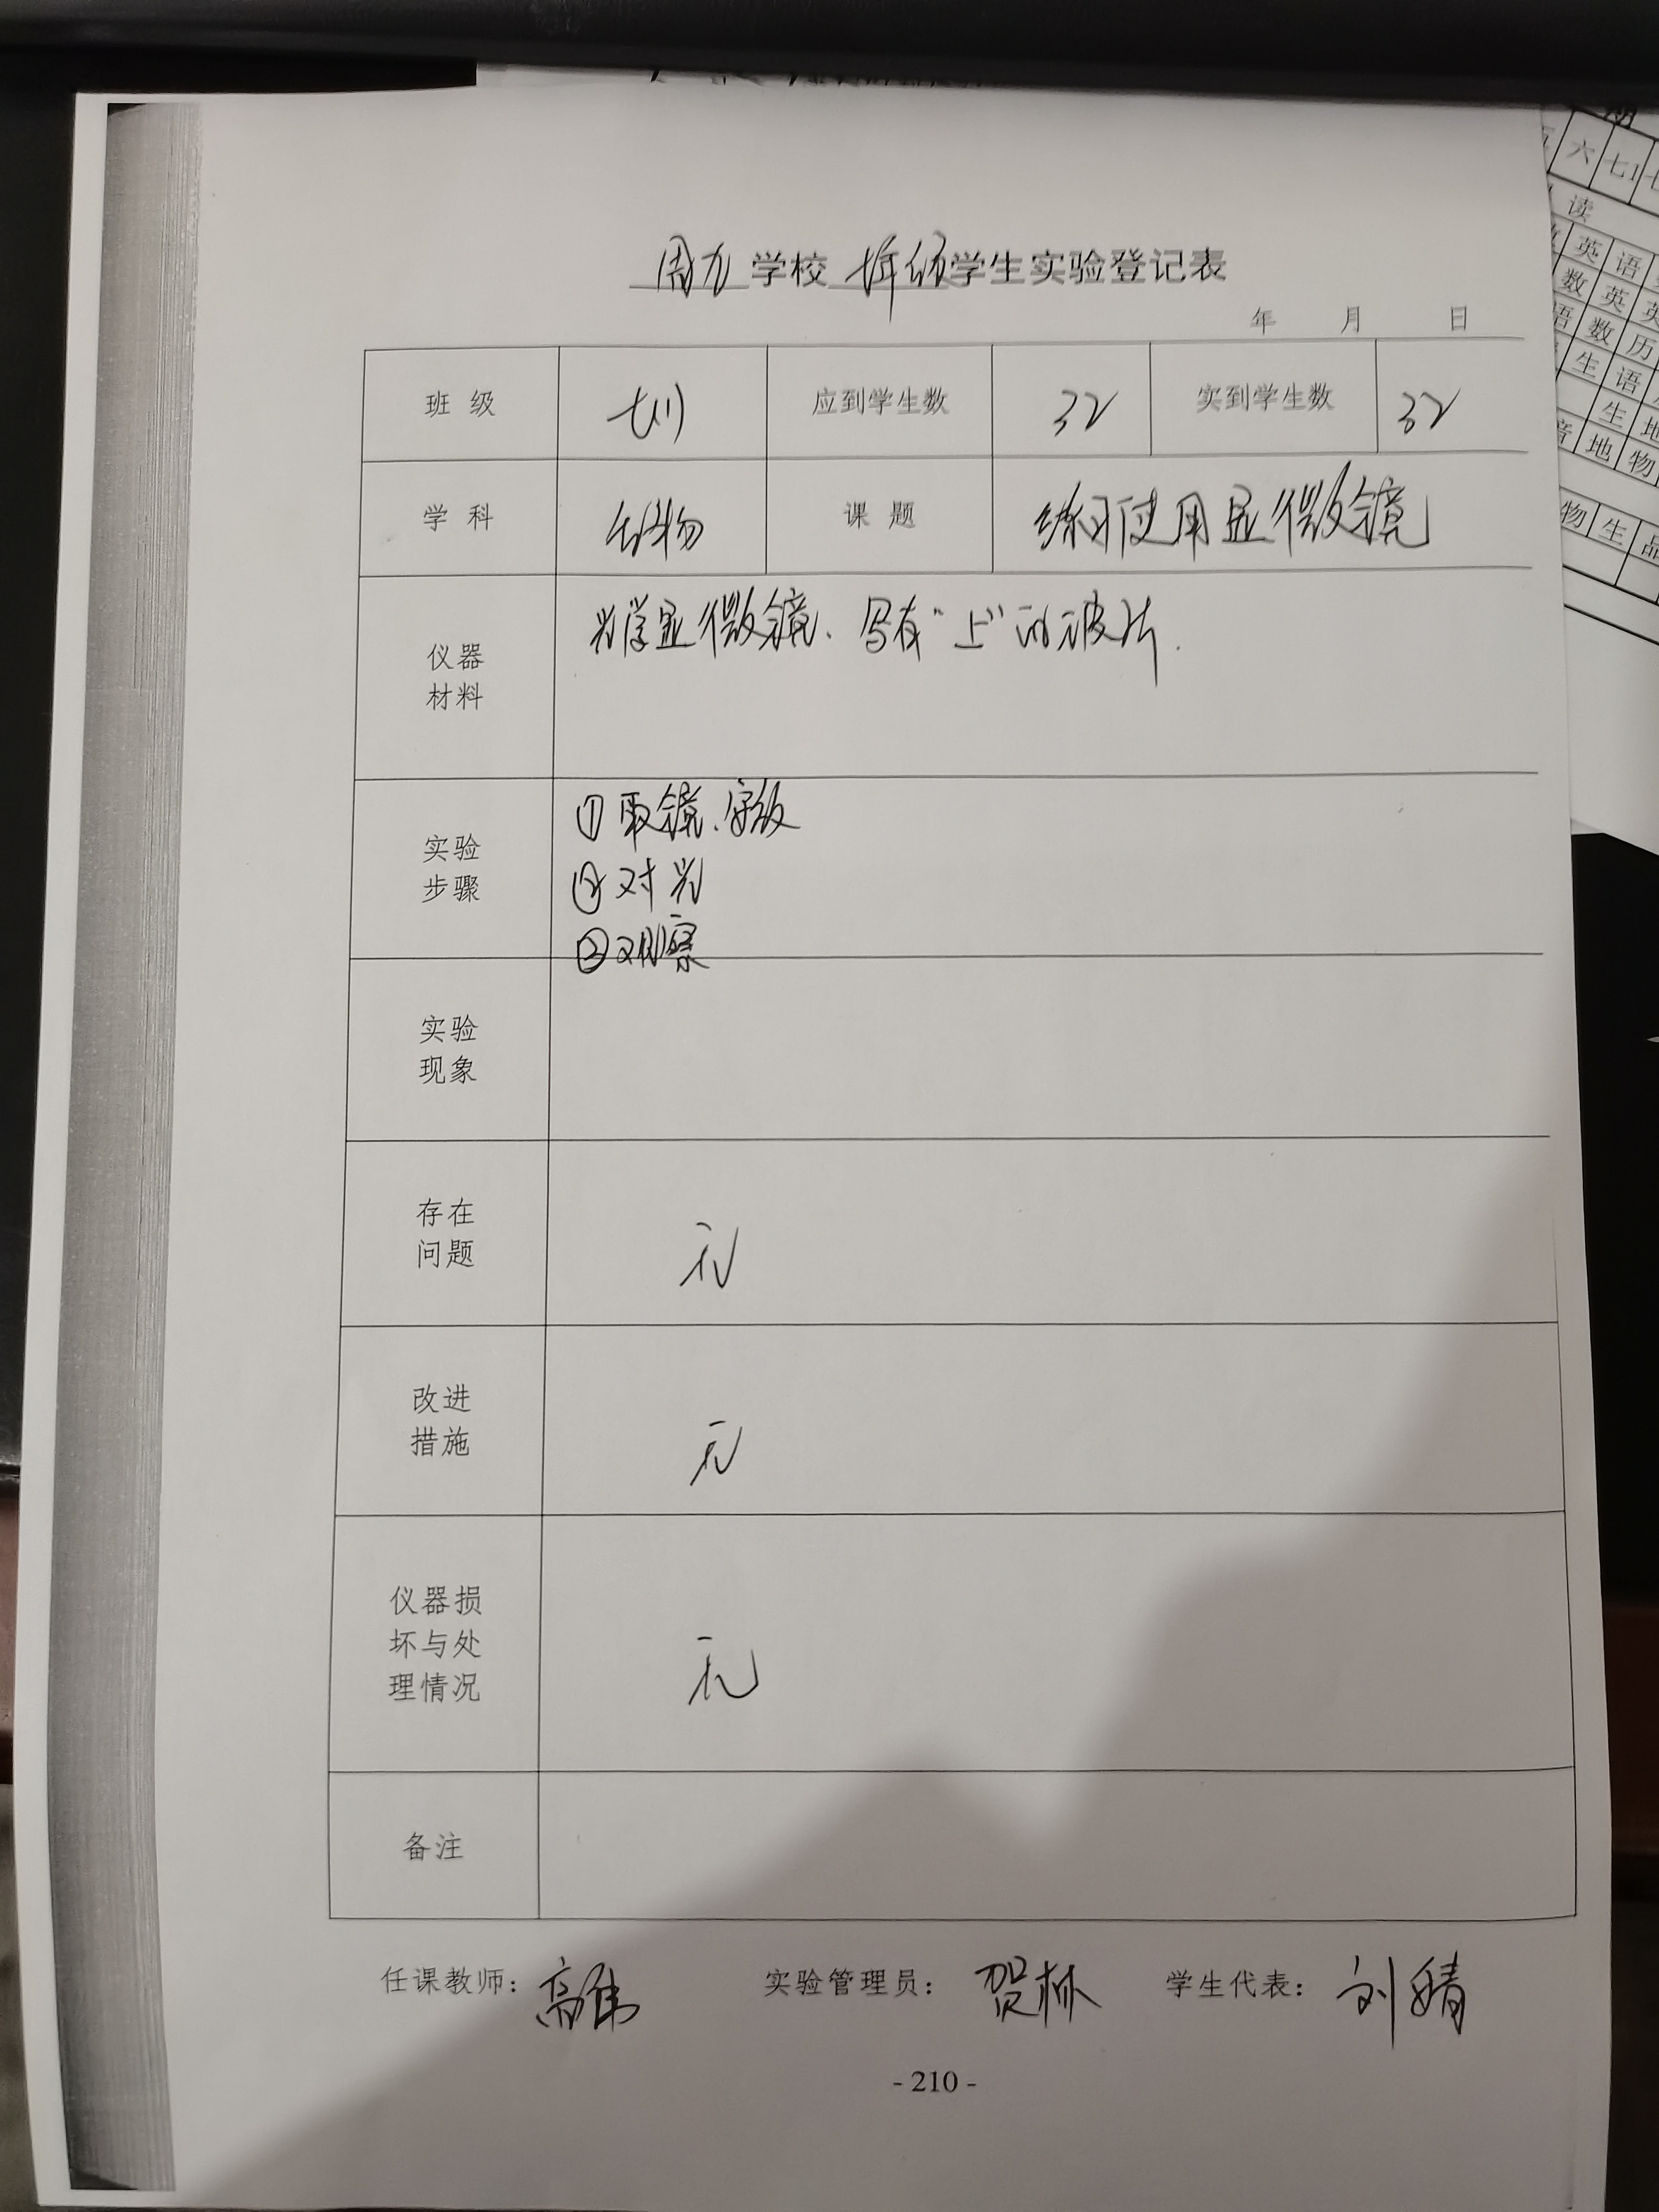 学校 七年级 学生实验登记表
年 月 日
班 级 七(1) 应到学生数 32 实到学生数 32
学 科 生物 课 题 练习使用显微镜
仪器 光学显微镜、写有“上”的玻片.
材料
实验 ①取镜、安放
步骤 ②对光
③观察
实验
现象
存在
问题 无
改进
措施 无
仪器损
坏与处 无
理情况
备注
任课教师: 高伟 实验管理员: 贺林 学生代表: 刘婧
- 210 -
六 七1
读
英 语
数 英
语 数 历
生 语
生 地
地 物
物 生 品